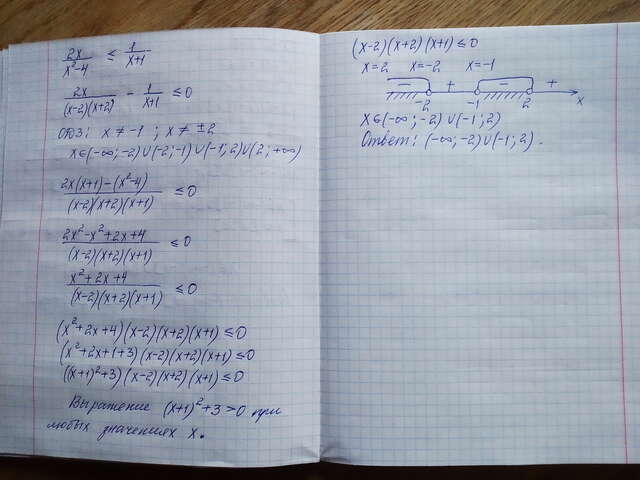 2x/(x²-4) ≤ 1/(x+1)
2x/((x-2)(x+2)) - 1/(x+1) ≤ 0
ОДЗ: x ≠ -1 ; x ≠ ±2
x∈(-∞;-2)∪(-2;-1)∪(-1;2)∪(2;+∞)
(2x(x+1)-(x²-4))/((x-2)(x+2)(x+1)) ≤ 0
(2x²-x²+2x+4)/((x-2)(x+2)(x+1)) ≤ 0
(x²+2x+4)/((x-2)(x+2)(x+1)) ≤ 0
(x²+2x+4)(x-2)(x+2)(x+1) ≤ 0
(x²+2x+1+3)(x-2)(x+2)(x+1) ≤ 0
((x+1)²+3)(x-2)(x+2)(x+1) ≤ 0
Выражение (x+1)²+3>0 при
любых значениях x.
(x-2)(x+2)(x+1) ≤ 0
x=2 x=-2 x=-1
- + - +
-2 -1 2 x
x∈(-∞;-2)∪(-1;2)
Ответ: (-∞;-2)∪(-1;2).